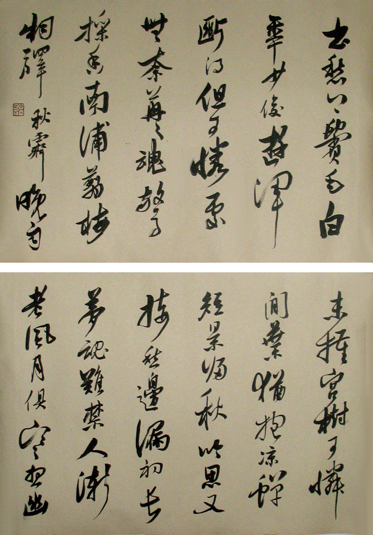 書愁上鬢毛白
年少俊遊渾
斷得但可憐處
無奈苒苒魂驚
採香南浦剪梅
烟驛 秋霽 晚雨
未摧宮樹可憐
閒葉猶抱涼蟬
短景歸秋吟思又
接愁邊漏初長
夢魂難禁人漸
老風月俱寒想幽